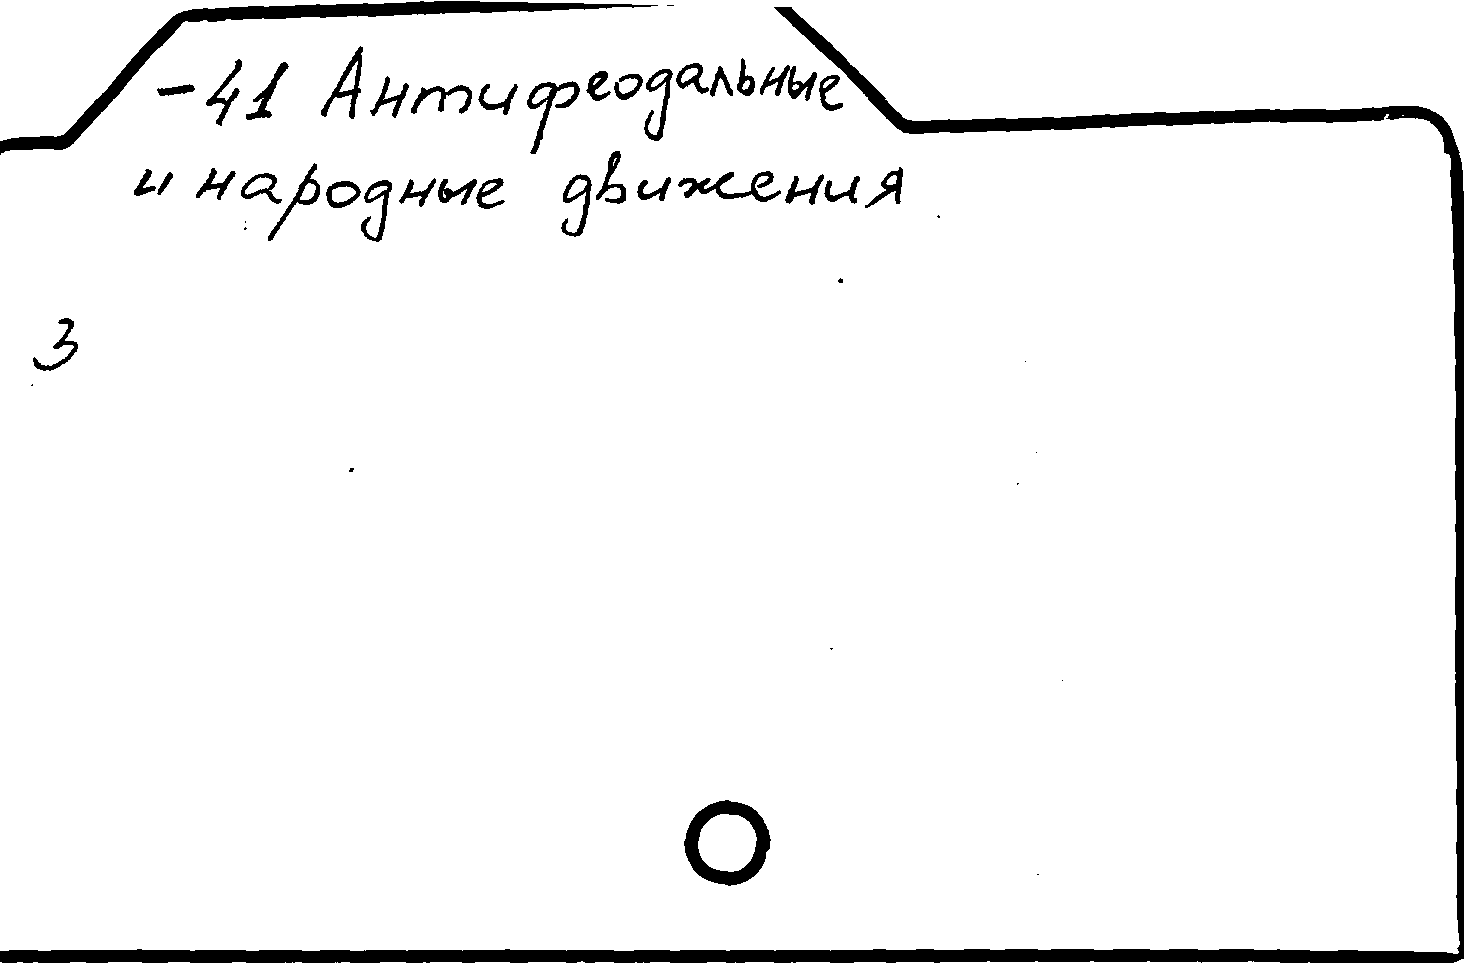 -41 Антифеодальные
и народные движения
3